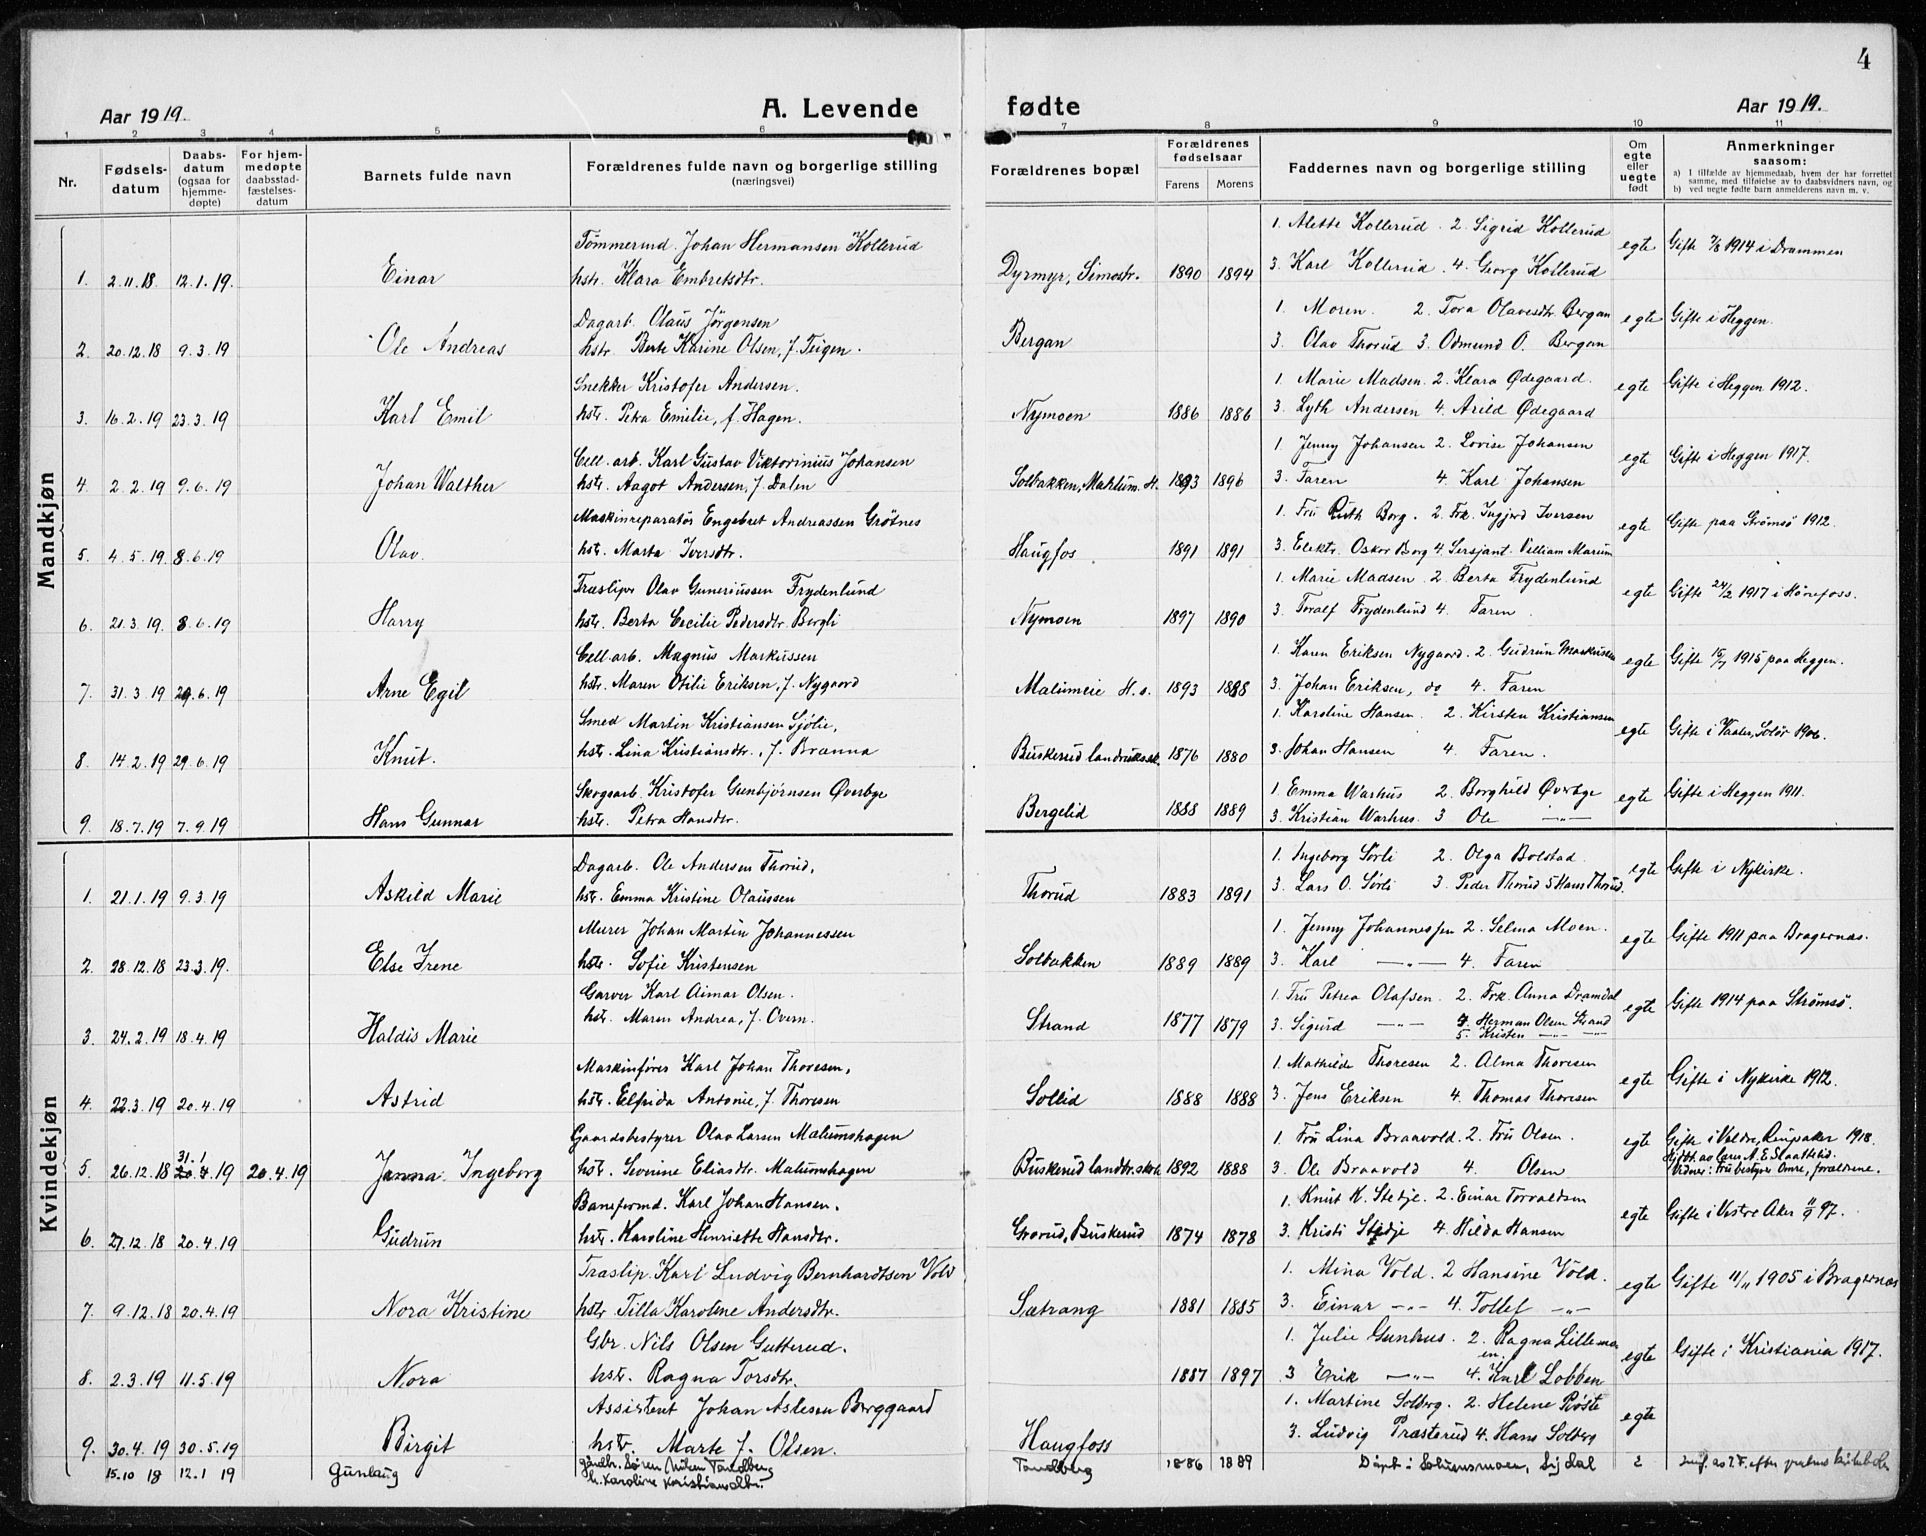 4
Aar 1919.
A. Levende
fødte
Aar 1919.
1 2 3 4 5 6 7 8 9 10 11
Nr.
Fødsels-
datum
Daabs-
datum
(ogsaa for
hjemme-
døpte)
For hjem-
medøpte
daabsstad-
fæstelses-
datum
Barnets fulde navn
Forældrenes fulde navn og borgerlige stilling
(næringsvei)
Forældrenes bopæl
Forældrenes
fødselsaar
Farens Morens
Faddernes navn og borgerlige stilling
Om
egte
eller
uegte
født
Anmerkninger
saasom:
a) I tilfælde av hjemmedaab, hvem der har forrettet
samme, med tilføielse av to daabsvidners navn, og
b) ved uegte fødte barn anmelderens navn m. v.
Mandkjøn
Tømmermd. Johan Hermansen Kollerud 1. Alette Kollerud. 2 Sigrid Kollerud
1. 2.11.18. 12.1.19. Einar hstr. Klara Embretsdtr. Dyrmyr, Simostr. 1890 1894 3. Karl Kollerud. 4. Georg Kollerud egte Gifte 7/8 1914 i Drammen
Dagarb. Olaus Jørgensen 1. Moren. 2. Tora Olavesdtr. Bergan
2. 20.12.18 9.3.19 Ole Andreas hstr. Berte Karine Olsen, f. Teigen. Bergan 3. Olav Thorud 3. Odmund O. Bergan egte Gifte i Heggen.
Snekker Kristofer Andersen. 1. Marie Madsen. 2. Klara Ødegaard.
3. 16.2.19 23.3.19 Karl Emil hstr. Petra Emilie, f. Hagen. Nymoen 1886 1886 3. Lyth Andersen 4. Arild Ødegaard egte Gifte i Heggen 1912.
Cell. arb. Karl Gustav Viktorinius Johansen 1. Jenny Johansen 2. Lovise Johansen
4. 2.2.19 9.6.19 Johan Walther hstr. Aagot Andersen, f. Dalen Solbakken, Maklum. H. 1893 1896 3. Faren 4. Karl Johansen egte Gifte i Heggen 1917.
Maskinreparatør Engebret Andreassen Grøtnes 1. Fru Ruth Borg. 2. Frk. Ingjerd Iversen
5. 4.5.19 8.6.19 Olav. hstr. Marta Iversdtr. Haugfos 1891 1891 3. Elektr. Oskar Borg 4. Sersjant. Villiam Marum egte Gifte paa Strømsø 1912.
Træsliper Olav Guneriussen Frydenlund 1. Marie Madsen 2. Berta Frydenlund
6. 21.3.19. 8.6.19 Harry hstr. Berta Cecilie Pedersdtr. Bergli Nymoen 1897 1890 3. Toralf Frydenlund 4. Faren. egte Gifte 24/2 1917 i Hønefoss.
Cell. arb. Magnus Markussen 1. Karen Eriksen Nygaard. 2. Gudrun Markussen
7. 31.3.19 29.6.19 Arne Egil hstr. Maren Otilie Eriksen, f. Nygaard Malumeie H. s. 1893 1888 3. Johan Eriksen, do 4. Faren egte Gifte 15/7 1915 paa Heggen.
Smed Martin Kristiansen Sjølie, 1. Karoline Hansen. 2. Kirsten Kristiansen
8. 14.2.19 29.6.19 Knut. hstr. Lina Kristiansdtr., f. Brænna Buskerud landbruksk. 1876 1880 3. Johan Hansen 4. Faren. egte Gifte i Vaaler, Solør 1906.
Skogsarb. Kristofer Gunbjørnsen Øverbye 1. Emma Warhus 2. Borghild Øverbye
9. 18.7.19 7.9.19 Hans Gunnar hstr. Petra Hansdtr. Bergelid 1888 1889 3. Kristian Warhus. 3 Ole —"— egte Gifte i Heggen 1911.
Kvindekjøn
Dagarb. Ole Andersen Thorud, 1. Ingeborg Sørli 2. Olga Bolstad.
1. 21.1.19 9.3.19 Askild Marie hstr. Emma Kristine Olaussen Thorud 1883 1891 3. Lars O. Sørli 3. Peder Thorud 5 Hans Thorud. egte Gifte i Nykirke.
Murer Johan Martin Johannessen 1. Jenny Johannessen 2. Selma Moen.
2. 28.12.18 23.3.19. Else Irene hstr. Sofie Kristensen Solbakken 1889 1889 3. Karl —"— 4. Faren egte Gifte 1911 paa Bragernæs.
Garver Karl Aimar Olsen. 1. Fru Petrea Olafsen. 2. Frk. Anna Dramdal
3. 24.2.19 18.4.19 Haldis Marie hstr. Maren Andrea, f. Overn. Strand 1877 1879 3. Sigurd —"— 4. Herman Olsen Strand egte Gifte 1914 paa Strømsø.
5. Kristen —"— —"—
Maskinfører Karl Johan Thoresen, 1. Mathilde Thoresen 2. Alma Thoresen
4. 22.3.19 20.4.19 Astrid hstr. Elfrida Antonie, f. Thoresen Sollid 1888 1888 3. Jens Eriksen 4. Thomas Thoresen egte Gifte i Nykirke 1912.
Gaardsbestyrer Olav Larsen Mælumshagen 1. Fru Lina Braavold. 2. Fru Olsen.
31.1
5. 26.12.18 20.4.19 20.4.19 Janna Ingeborg hstr. Severine Eliasdtr. Malumshagen Buskerud landbr. skole 1892 1888 3. Ole Braavold 4. Olsen egte Gifte i Veldre, Ringsaker 1918.
Hjdbt. av Lærer A. E. Slaattelid.
Vidner: Fru bestyrer Omre, forældrene.
Baneformd. Karl Johan Hansen. 1. Knut K. Stedje. 2. Einar Torvaldsen
6. 27.12.18 20.4.19 Gudrun hstr. Karoline Henriette Hansdtr. Grorud, Buskerud 1874 1878 3. Kristi Stedje 4. Hilda Hansen egte Gifte i Vestre Aker 11/9 97.
Træslip. Karl Ludvig Bernhardtsen Vold 1. Mina Vold. 2 Hansine Vold.
7. 9.12.18 20.4.19 Nora Kristine hstr. Tilla Karoline Andersdtr. Sætrang 1881 1885 3. Einar —"— 4. Tollef —"— egte Gifte 11/11 1905 i Bragernæs
Gbr. Nils Olsen Gutterud. 1. Julie Gunhus. 2. Ragna Lillemoen
8. 2.3.19 11.5.19 Nora hstr. Ragna Torsdtr. 1887 1897 3 Erik —"— 4. Karl Lobben egte Gifte i Kristiania 1917.
Assistent Johan Aslesen Berggaard 1. Martine Solberg. 2. Helene Røste
9. 30.4.19 30.5.19 Birgit hstr. Marte f. Olsen. Haugfoss 3. Ludvig Præsterud 4. Hans Solberg egte
15.10 18 12.1 19 Gunlaug gaardbr. Søren Nilsen Tandberg Tandberg 1886 1889 Døpt i Solumsmoen, Sigdal
h. Karoline Kristiansdtr.